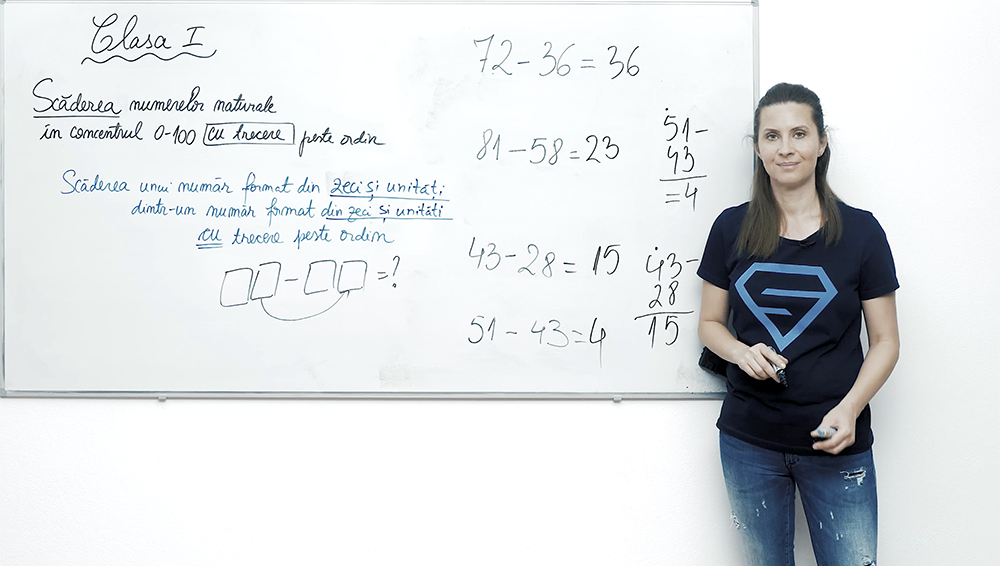 Clasa I
Scăderea numerelor naturale
în concentrul 0-100 cu trecere peste ordin
Scăderea unui număr format din zeci și unități
dintr-un număr format din zeci și unități
cu trecere peste ordin
- =?
72-36=36
81-58=23
43-28=15
51-43=4
51-
43
=4
43-
28
15